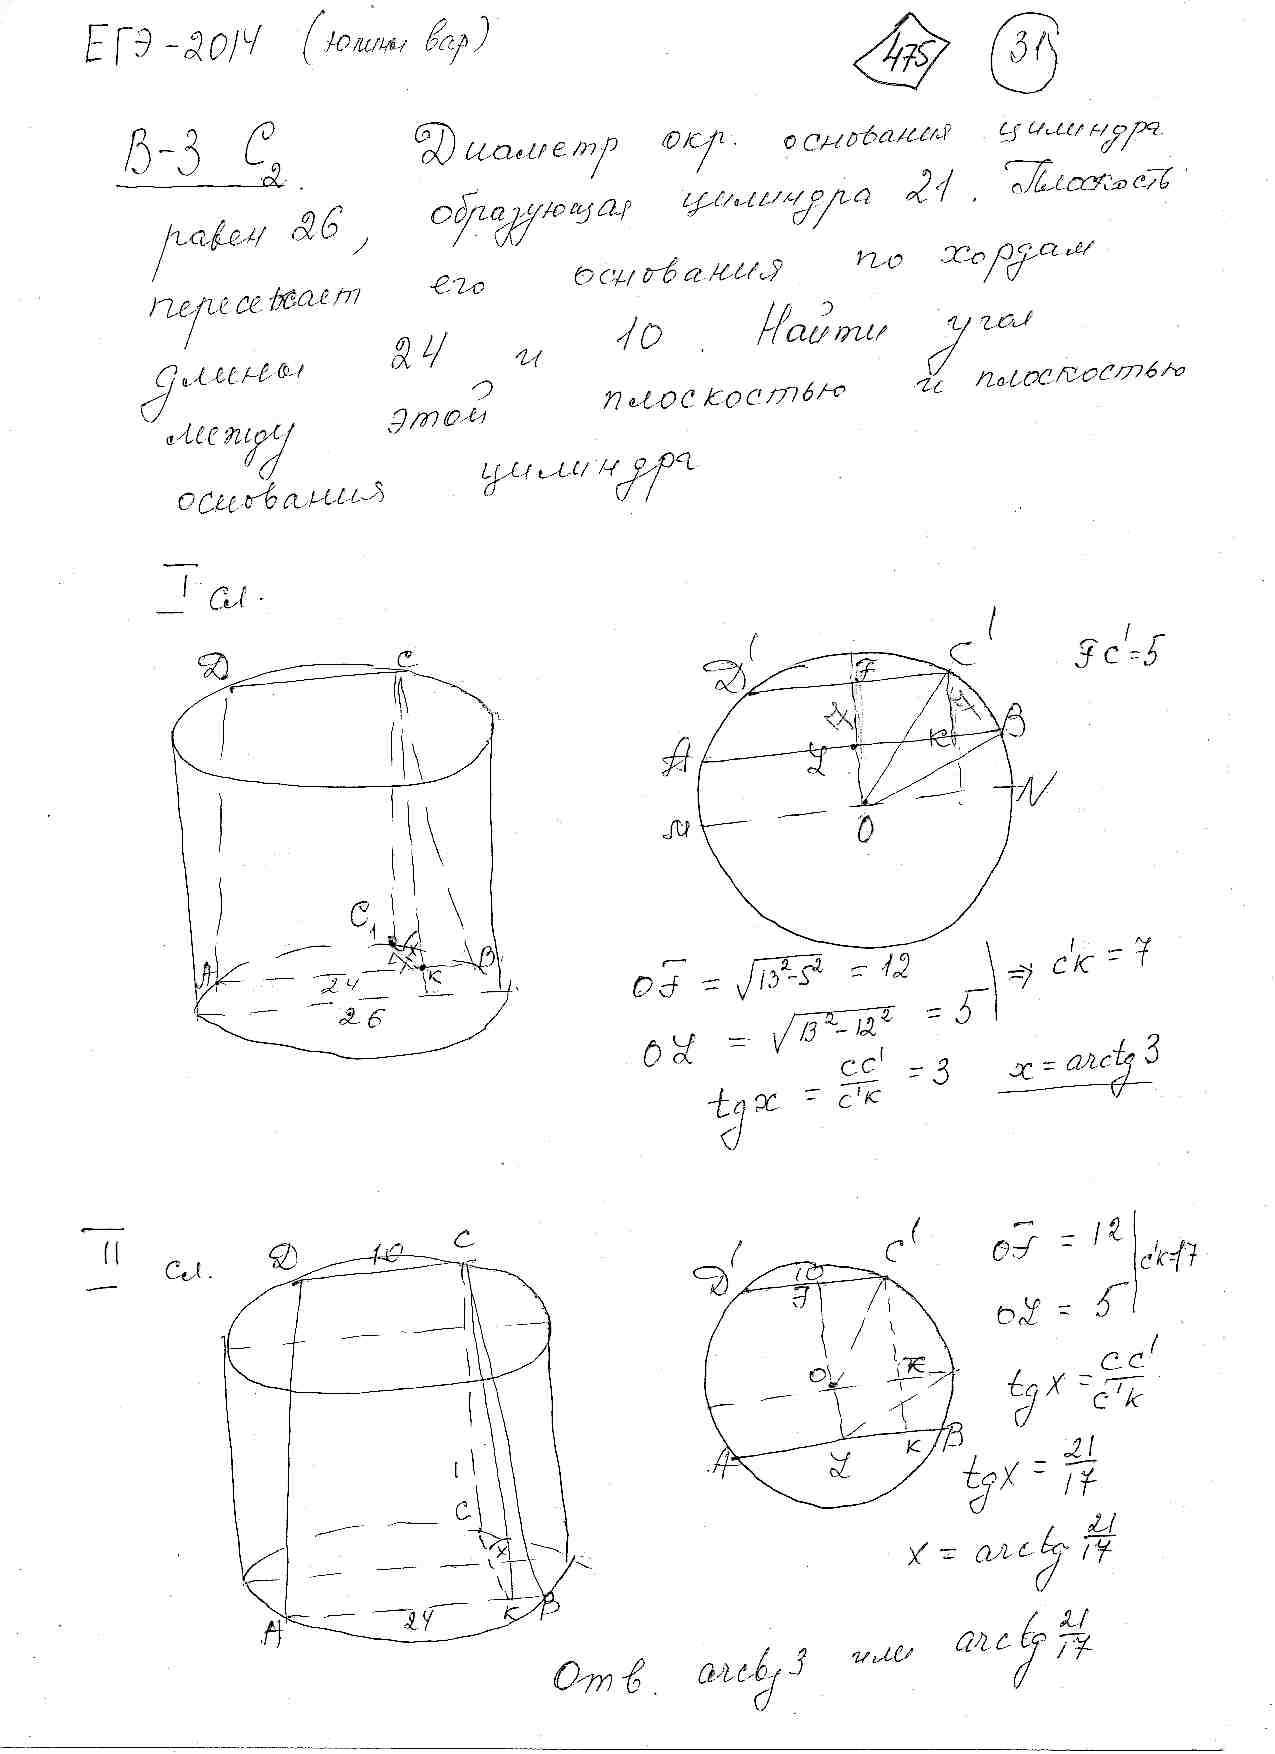 ЕГЭ-2014 (юшны вар)
475 31
В-3 С2. Диаметр окр. основания цилиндра
равен 26, образующая цилиндра 21. Плоскость
пересекает его основания по хордам
длины 24 и 10. Найти угол
между этой плоскостью и плоскостью
основания цилиндра
I сл.
D C
C1 x
A 24 K B
26
D' F C' FC'=5
A L K B
7 7
M O N
OF = √13²-5² = 12
OL = √13²-12² = 5 ⇒ C'K = 7
tgx = CC'/C'K = 3 x = arctg 3
II сл.
D 10 C
C' x
A 24 K B
D' 10 C'
F
O K
A L K B
OF = 12
OL = 5 C'K=17
tgx = CC'/C'K
tgx = 21/17
x = arctg 21/17
Отв. arctg 3 или arctg 21/17